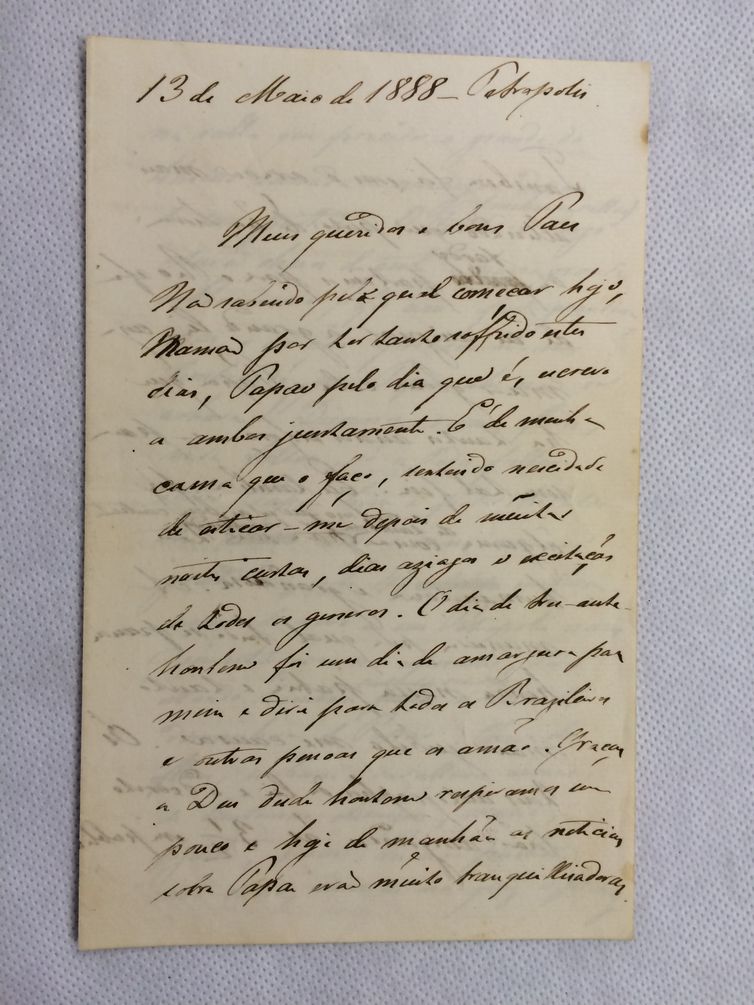 13 de Maio de 1888 - Petropolis
Meus queridos e bons Paes
Não sabendo por qual começar hoje,
Mamãe por ter tanto soffrido estes
dias, Papae pelo dia que é, escrevo
a ambos juntamente. É de minha
cama que o faço, sentindo necessidade
de esticar-me depois de muitas
noites curtas, dias aziagos e excitações
de todos os generos. O dia de tres-ante-
hontem foi um dia de amargura para
mim e direi para todos os Brazileiros
e outras pessoas que os amão. Graças
a Deus desde hontem respiramos um
pouco e hoje de manhãa as noticias
sobre Papae erão muito tranquillisadoras.